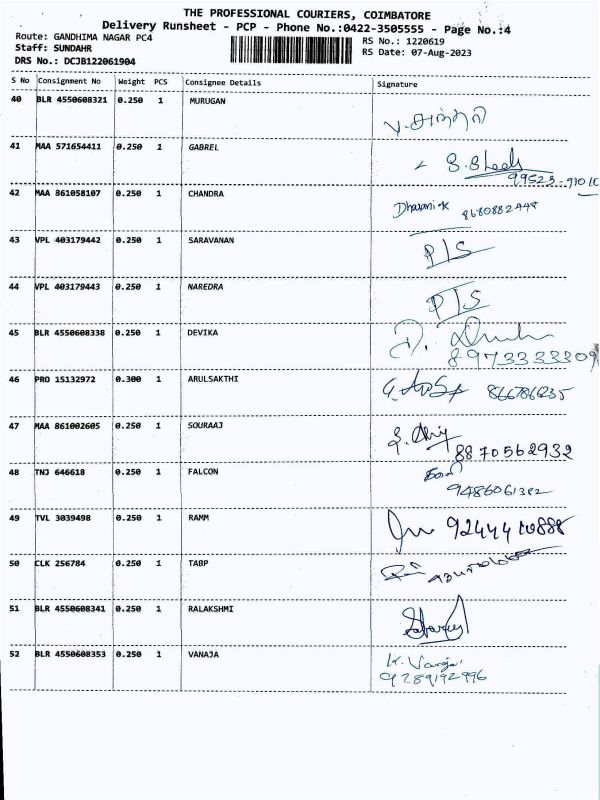 THE PROFESSIONAL COURIERS, COIMBATORE
Delivery Runsheet - PCP - Phone No.:0422-3505555 - Page No.:4
Route: GANDHIMA NAGAR PC4
RS No.: 1220619
Staff: SUNDAHR
RS Date: 07-Aug-2023
DRS No.: DCJB122061904
S No Consignment No Weight PCS Consignee Details Signature
40 BLR 4550608321 0.250 1 MURUGAN
41 MAA 571654411 0.250 1 GABREL
42 MAA 861058107 0.250 1 CHANDRA 8680882448
43 VPL 403179442 0.250 1 SARAVANAN P/S
44 VPL 403179443 0.250 1 NAREDRA P/S
45 BLR 4550608338 0.250 1 DEVIKA
8973333309
46 PRO 15132972 0.300 1 ARULSAKTHI
47 MAA 861002605 0.250 1 SOURAAJ
8870562932
48 TNJ 646618 0.250 1 FALCON
9486061382
49 TVL 3039498 0.250 1 RAMM
50 CLK 256784 0.250 1 TABP
51 BLR 4550608341 0.250 1 RALAKSHMI
52 BLR 4550608353 0.250 1 VANAJA K. Vanaja
9289192996